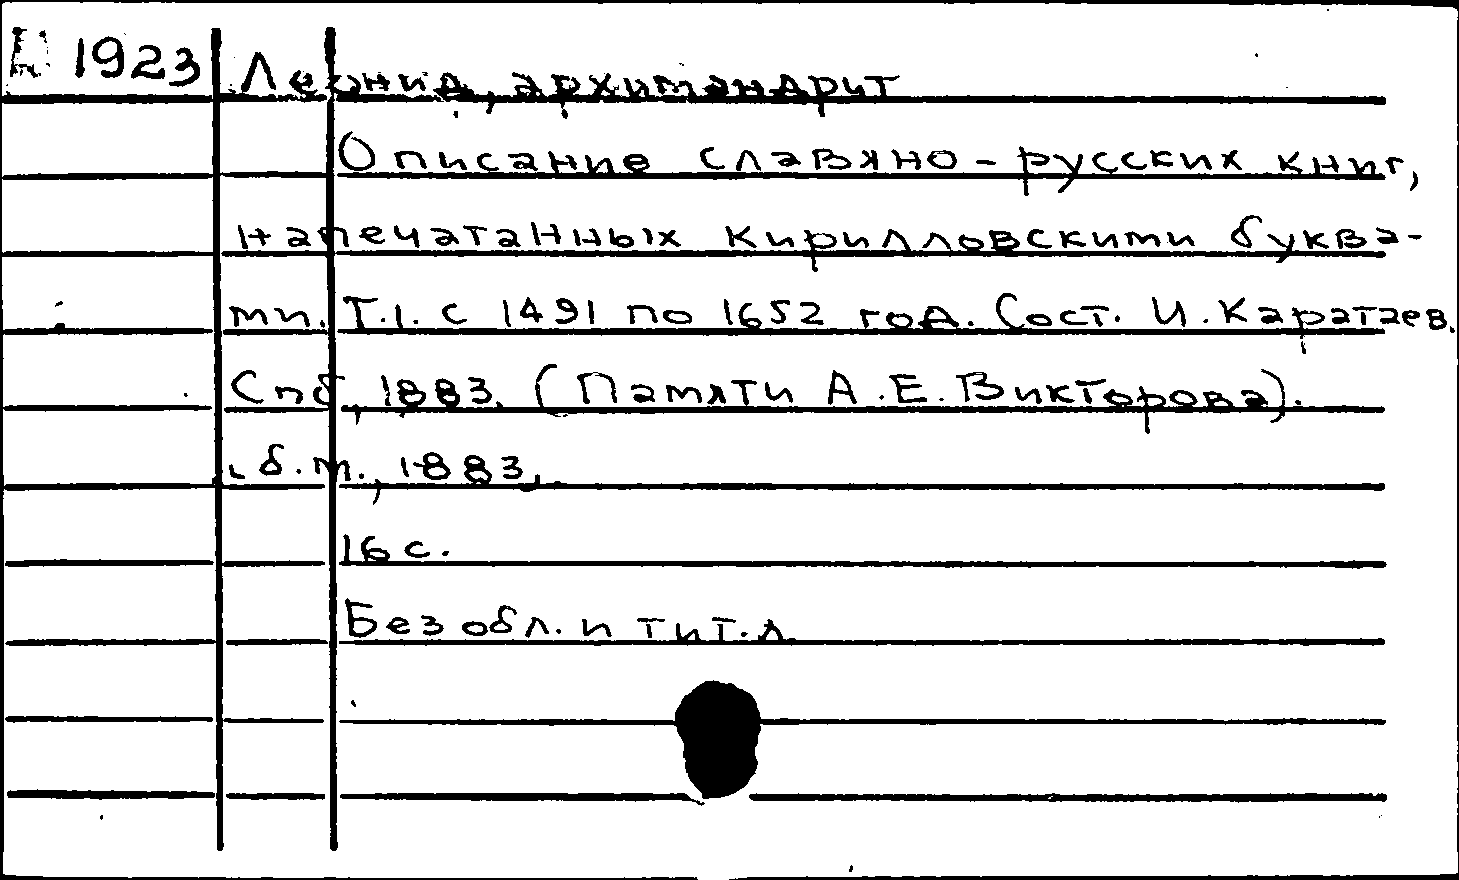 1923 Леонид, архимандрит
Описание славяно-русских книг,
напечатанных кирилловскими буква-
ми. Т.1. с 1491 по 1652 год. Сост. И. Каратаев.
Спб, 1883. (Памяти А.Е. Викторова).
б.м., 1883.
16 с.
Без обл. и тит. л.